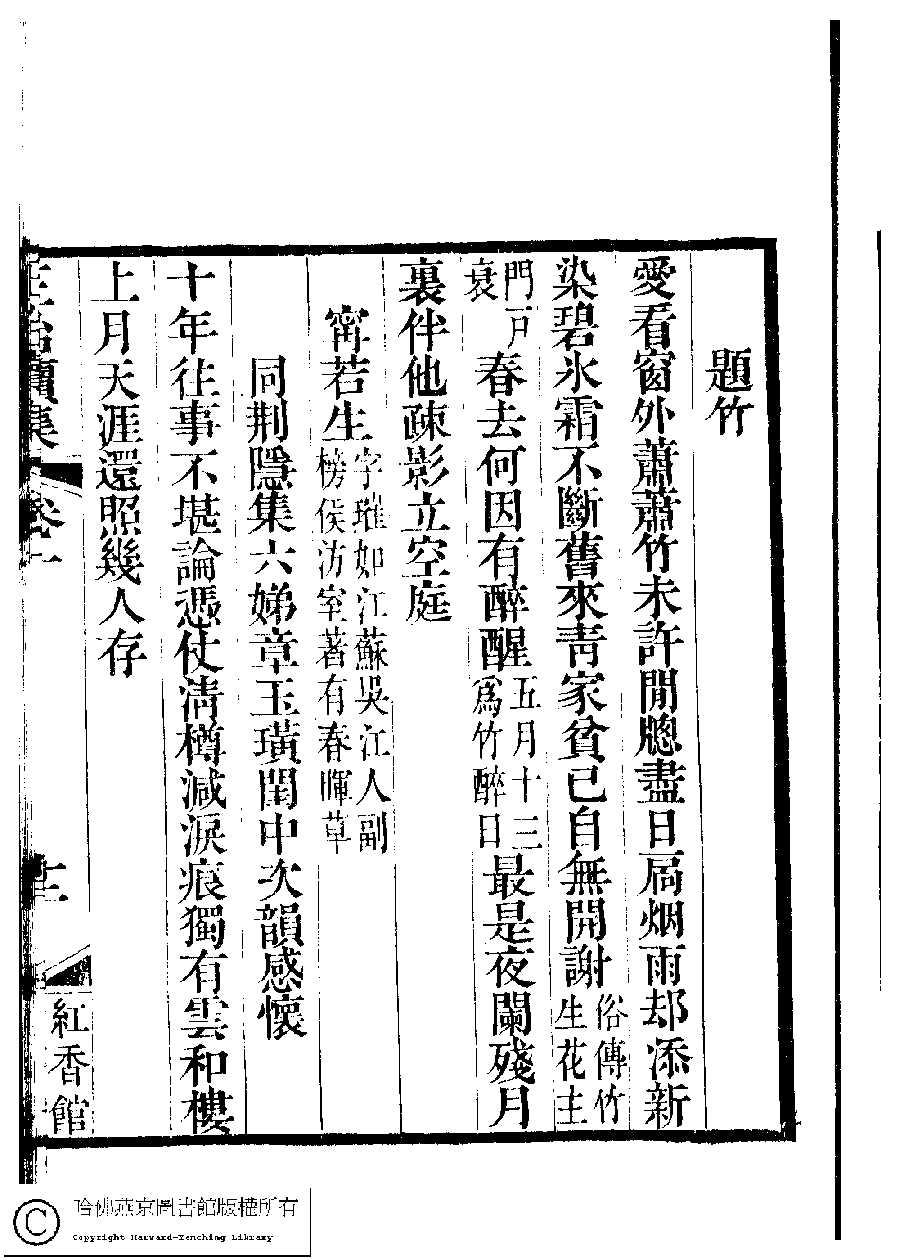 題竹
愛看窗外蕭蕭竹未許閒牕盡日扃烟雨却添新
染碧氷霜不斷舊來靑家貧已自無開謝俗傳竹生花主
門戸衰春去何因有醉醒五月十三爲竹醉日最是夜闌殘月
裏伴他疎影立空庭
甯若生字璀如江蘇吳江人副榜侯汸室著有春暉草
同荆隱集六娣章玉璜閨中次韻感懷
十年往事不堪論憑仗淸樽減淚痕獨有雲和樓
上月天涯還照幾人存
正始續集 卷一 十二 紅香館
哈佛燕京圖書館版權所有
Copyright Harvard-Yenching Library